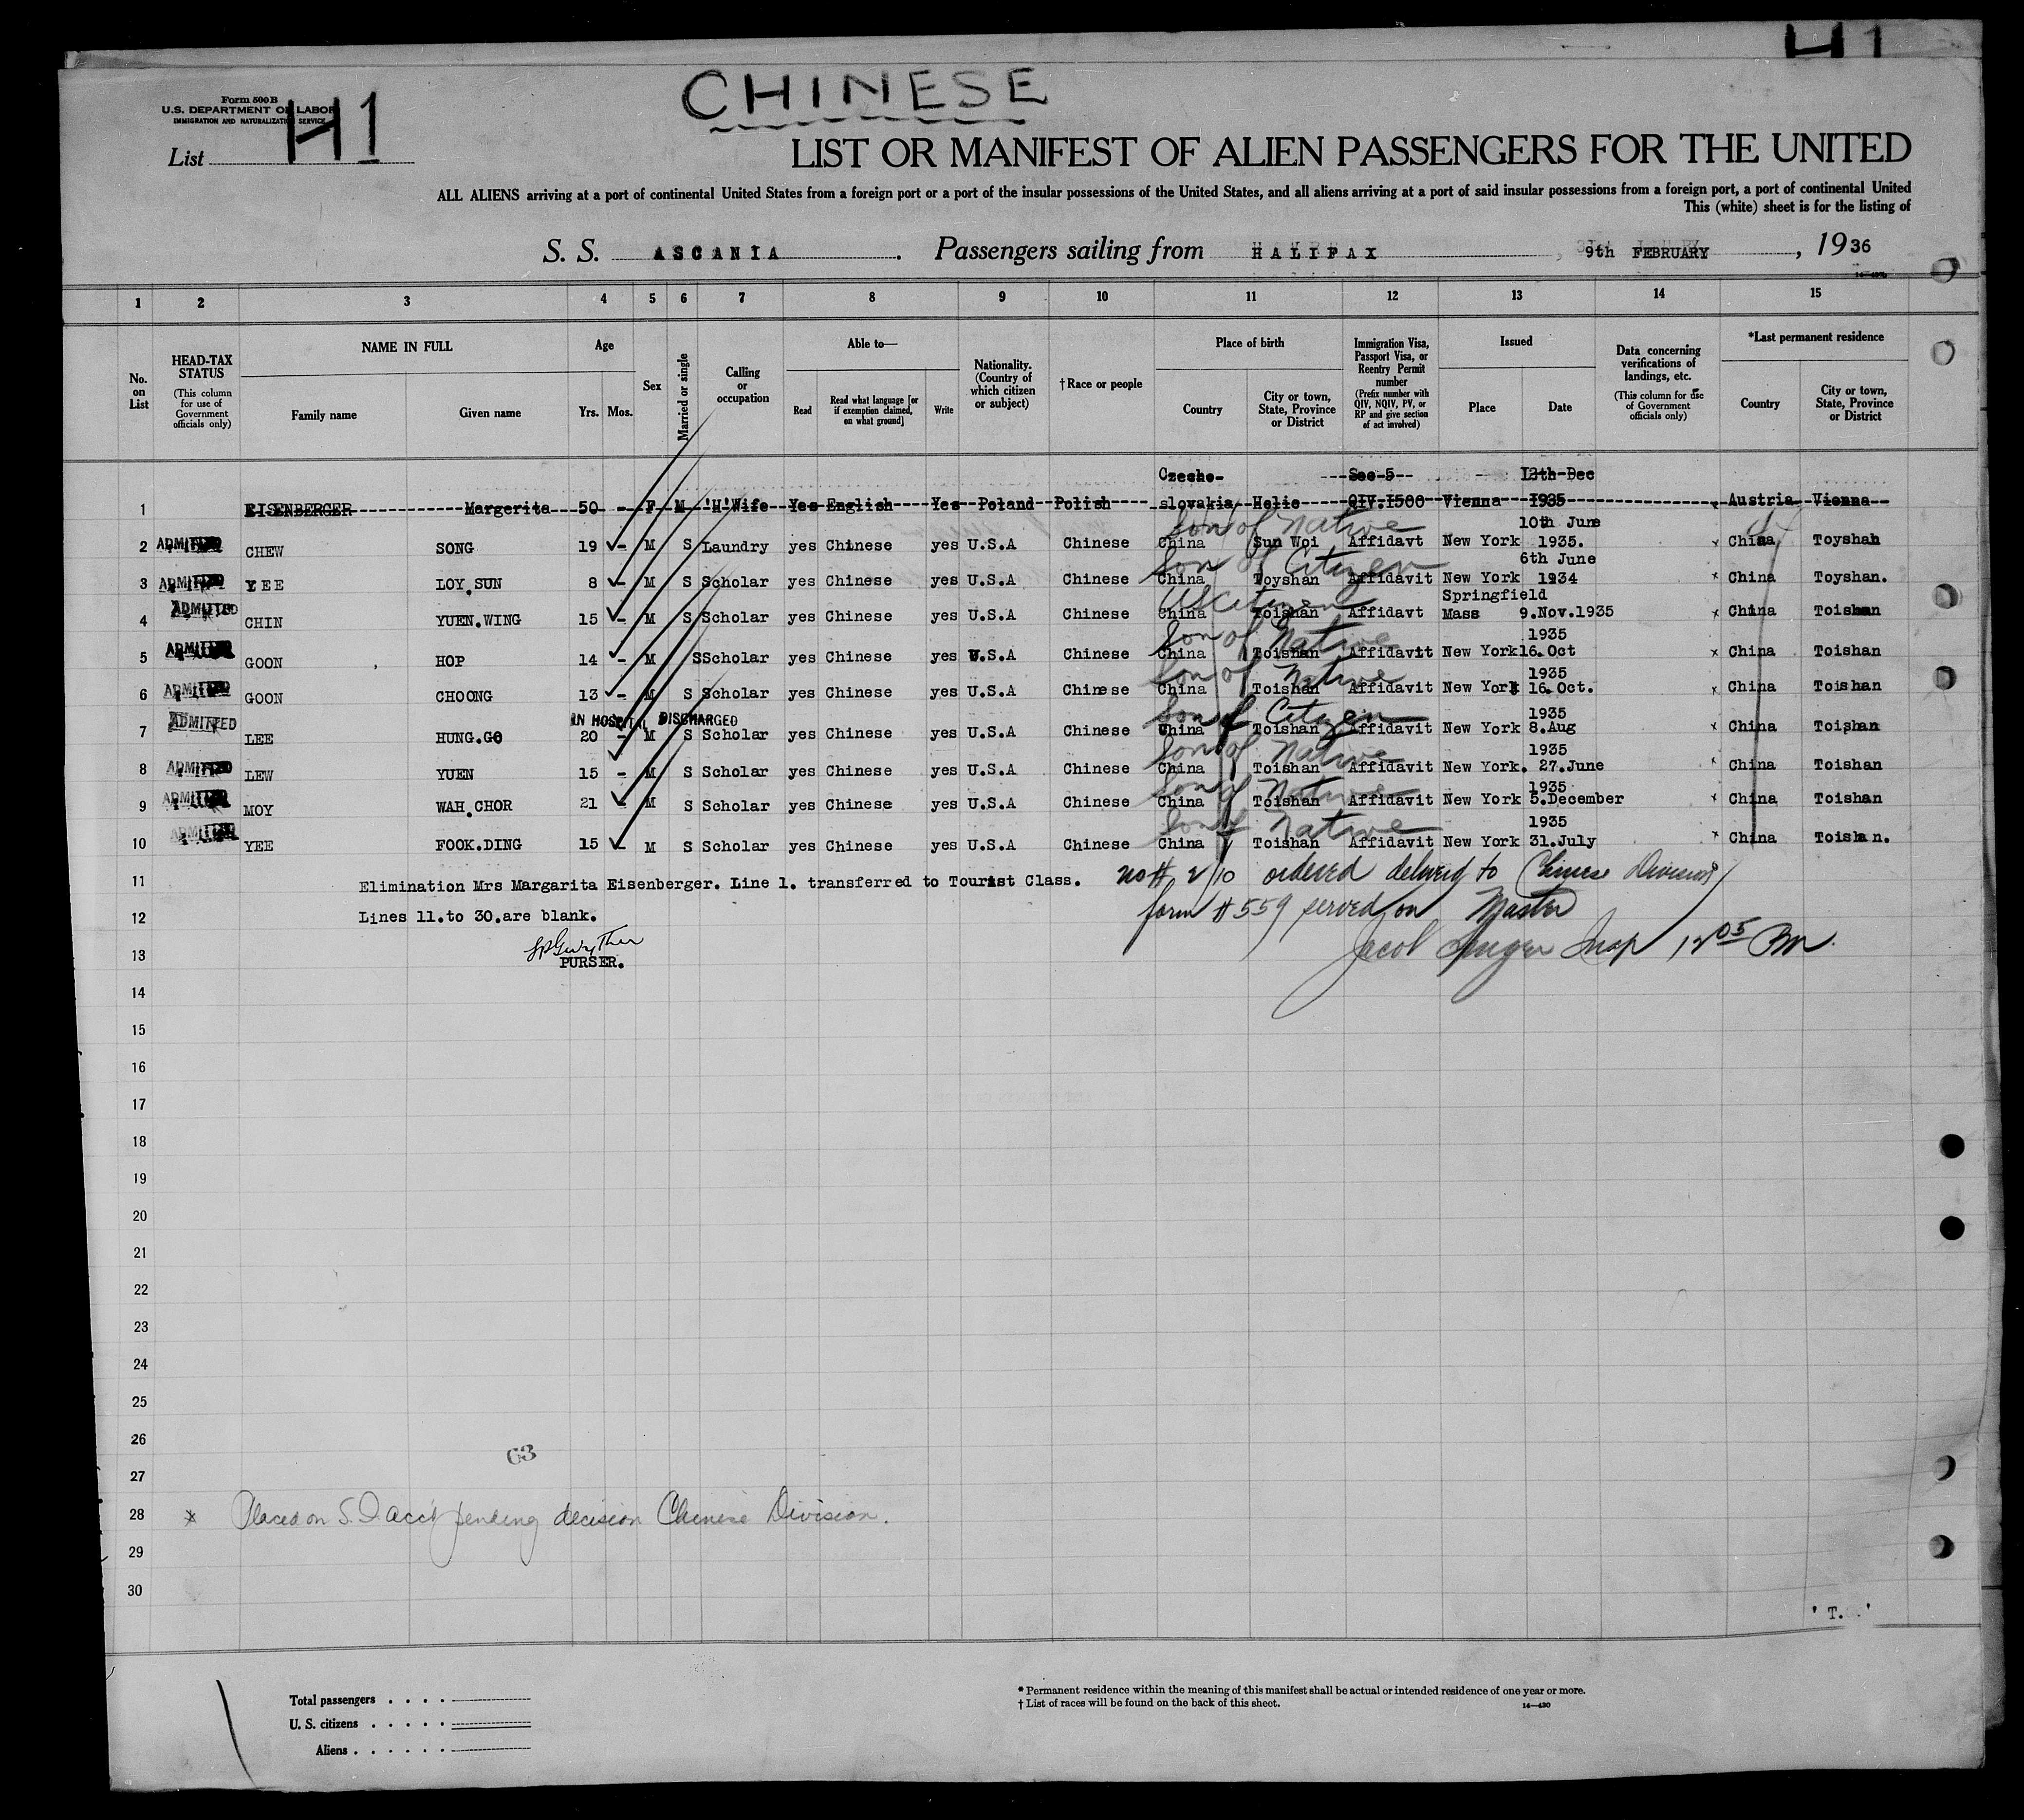 H1
CHINESE
Form 500 B
U.S. DEPARTMENT OF LABOR
IMMIGRATION AND NATURALIZATION SERVICE
List H1
LIST OR MANIFEST OF ALIEN PASSENGERS FOR THE UNITED
ALL ALIENS arriving at a port of continental United States from a foreign port or a port of the insular possessions of the United States, and all aliens arriving at a port of said insular possessions from a foreign port, a port of continental United
This (white) sheet is for the listing of
S. S. ASCANIA. Passengers sailing from HALIFAX, 9th FEBRUARY, 1936
1 2 3 4 5 6 7 8 9 10 11 12 13 14 15
No. on List
HEAD-TAX STATUS (This column for use of Government officials only)
NAME IN FULL
Family name Given name
Age
Yrs. Mos.
Sex
Married or single
Calling or occupation
Able to—
Read Read what language [or if exemption claimed, on what ground] Write
Nationality. (Country of which citizen or subject)
†Race or people
Place of birth
Country City or town, State, Province or District
Immigration Visa, Passport Visa, or Reentry Permit number (Prefix number with QIV, NQIV, PV, or RP and give section of act involved)
Issued
Place Date
Data concerning verifications of landings, etc. (This column for use of Government officials only)
*Last permanent residence
Country City or town, State, Province or District
Czecho- Sec 5 12th Dec
1 EISENBERGER Margerita 50 - F M 'H'Wife Yes English Yes Poland Polish slovakia Helic QIV.1500 Vienna 1935 Austria Vienna
Son of Native 10th June
2 ADMITTED CHEW SONG 19 - M S Laundry yes Chinese yes U.S.A Chinese China Sun Woi Affidavt New York 1935. x China Toyshan
Son of Citizen 6th June
3 ADMITTED YEE LOY.SUN 8 - M S Scholar yes Chinese yes U.S.A Chinese China Toyshan Affidavit New York 1934 x China Toyshan.
US Citizen Springfield
4 ADMITTED CHIN YUEN.WING 15 - M S Scholar yes Chinese yes U.S.A Chinese China Toishan Affidavt Mass 9.Nov.1935 x China Toishan
Son of Native 1935
5 ADMITTED GOON HOP 14 - M S Scholar yes Chinese yes U.S.A Chinese China Toishan Affidavit New York 16.Oct x China Toishan
Son of Native 1935
6 ADMITTED GOON CHOONG 13 - M S Scholar yes Chinese yes U.S.A Chinese China Toishan Affidavit New York 16.Oct. x China Toishan
IN HOSPITAL DISCHARGED Son of Citizen 1935
7 ADMITTED LEE HUNG.GO 20 - M S Scholar yes Chinese yes U.S.A Chinese China Toishan Affidavit New York 8.Aug x China Toishan
Son of Native 1935
8 ADMITTED LEW YUEN 15 - M S Scholar yes Chinese yes U.S.A Chinese China Toishan Affidavit New York. 27.June x China Toishan
Son of Native 1935
9 ADMITTED MOY WAH.CHOR 21 - M S Scholar yes Chinese yes U.S.A Chinese China Toishan Affidavit New York 5.December x China Toishan
Son of Native 1935
10 ADMITTED YEE FOOK.DING 15 - M S Scholar yes Chinese yes U.S.A Chinese China Toishan Affidavit New York 31.July x China Toishan.
11 Elimination Mrs Margarita Eisenberger. Line 1. transferred to Tourist Class. No # 2/10 ordered delivered to Chinese Division
12 Lines 11.to 30.are blank. form # 559 served on Master
13 PURSER. Jacob Insp 12 05 PM
14
15
16
17
18
19
20
21
22
23
24
25
26
63
27
28 x Placed on S.I. acc't pending decision Chinese Division.
29
30
' T. '
Total passengers . . . .
U. S. citizens . . . . .
Aliens . . . . . .
* Permanent residence within the meaning of this manifest shall be actual or intended residence of one year or more.
† List of races will be found on the back of this sheet.
14—430